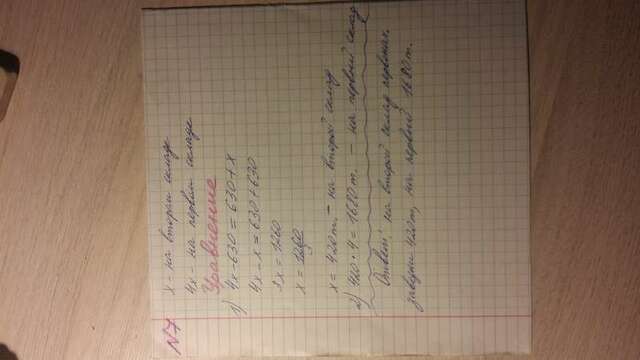 N7
x - на втором складе
4x - на первом складе
Уравнение
1) 4x-630=630+x
4x-x=630+630
3x=1260
x=1260
x=420т. - на второй склад
2) 420·4=1680т. - на первый склад
Ответ: на второй склад первонач.
завезли 420т, на первый 1680т.